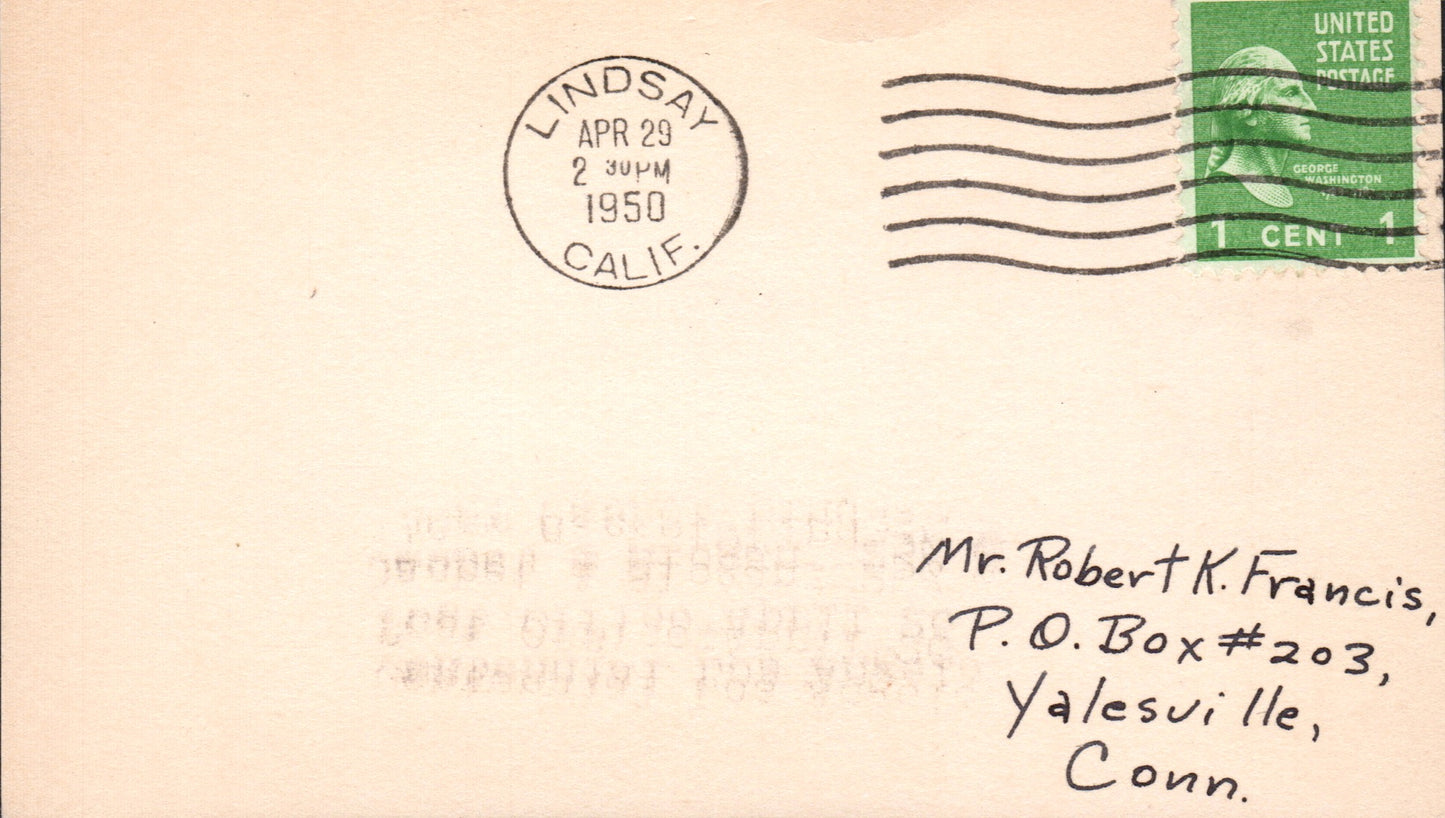 LINDSAY
APR 29
2 30PM
1950
CALIF.
UNITED
STATES
POSTAGE
GEORGE
WASHINGTON
1 CENT 1
Mr. Robert K. Francis,
P. O. Box #203,
Yalesville,
Conn.